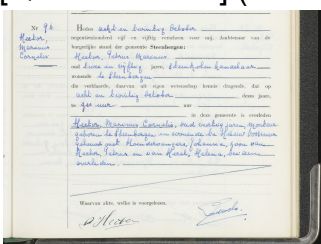 Nr 96
Hector,
Marinus
Cornelis
Heden acht en twintig October
negentienhonderd vijf en vijftig verscheen voor mij, Ambtenaar van de
burgerlijke stand der gemeente Steenbergen:
Hector, Petrus Marinus
oud twee en vijftig jaren,
wonende te Steenbergen
die verklaarde, daarvan uit eigen wetenschap kennis dragende, dat op
acht en twintig October dezes jaars,
te zes uur
in deze gemeente is overleden
Hector, Marinus Cornelis, oud veertig jaren, monteur
geboren te Steenbergen en wonende te
gehuwd met Johanna, zoon van
Hector, Petrus en van Helena, beiden
overleden.
Waarvan akte, welke is voorgelezen.
P. Hector